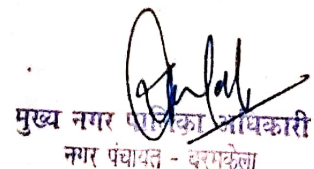 मुख्य नगर पालिका अधिकारी
नगर पंचायत - बरमकेला